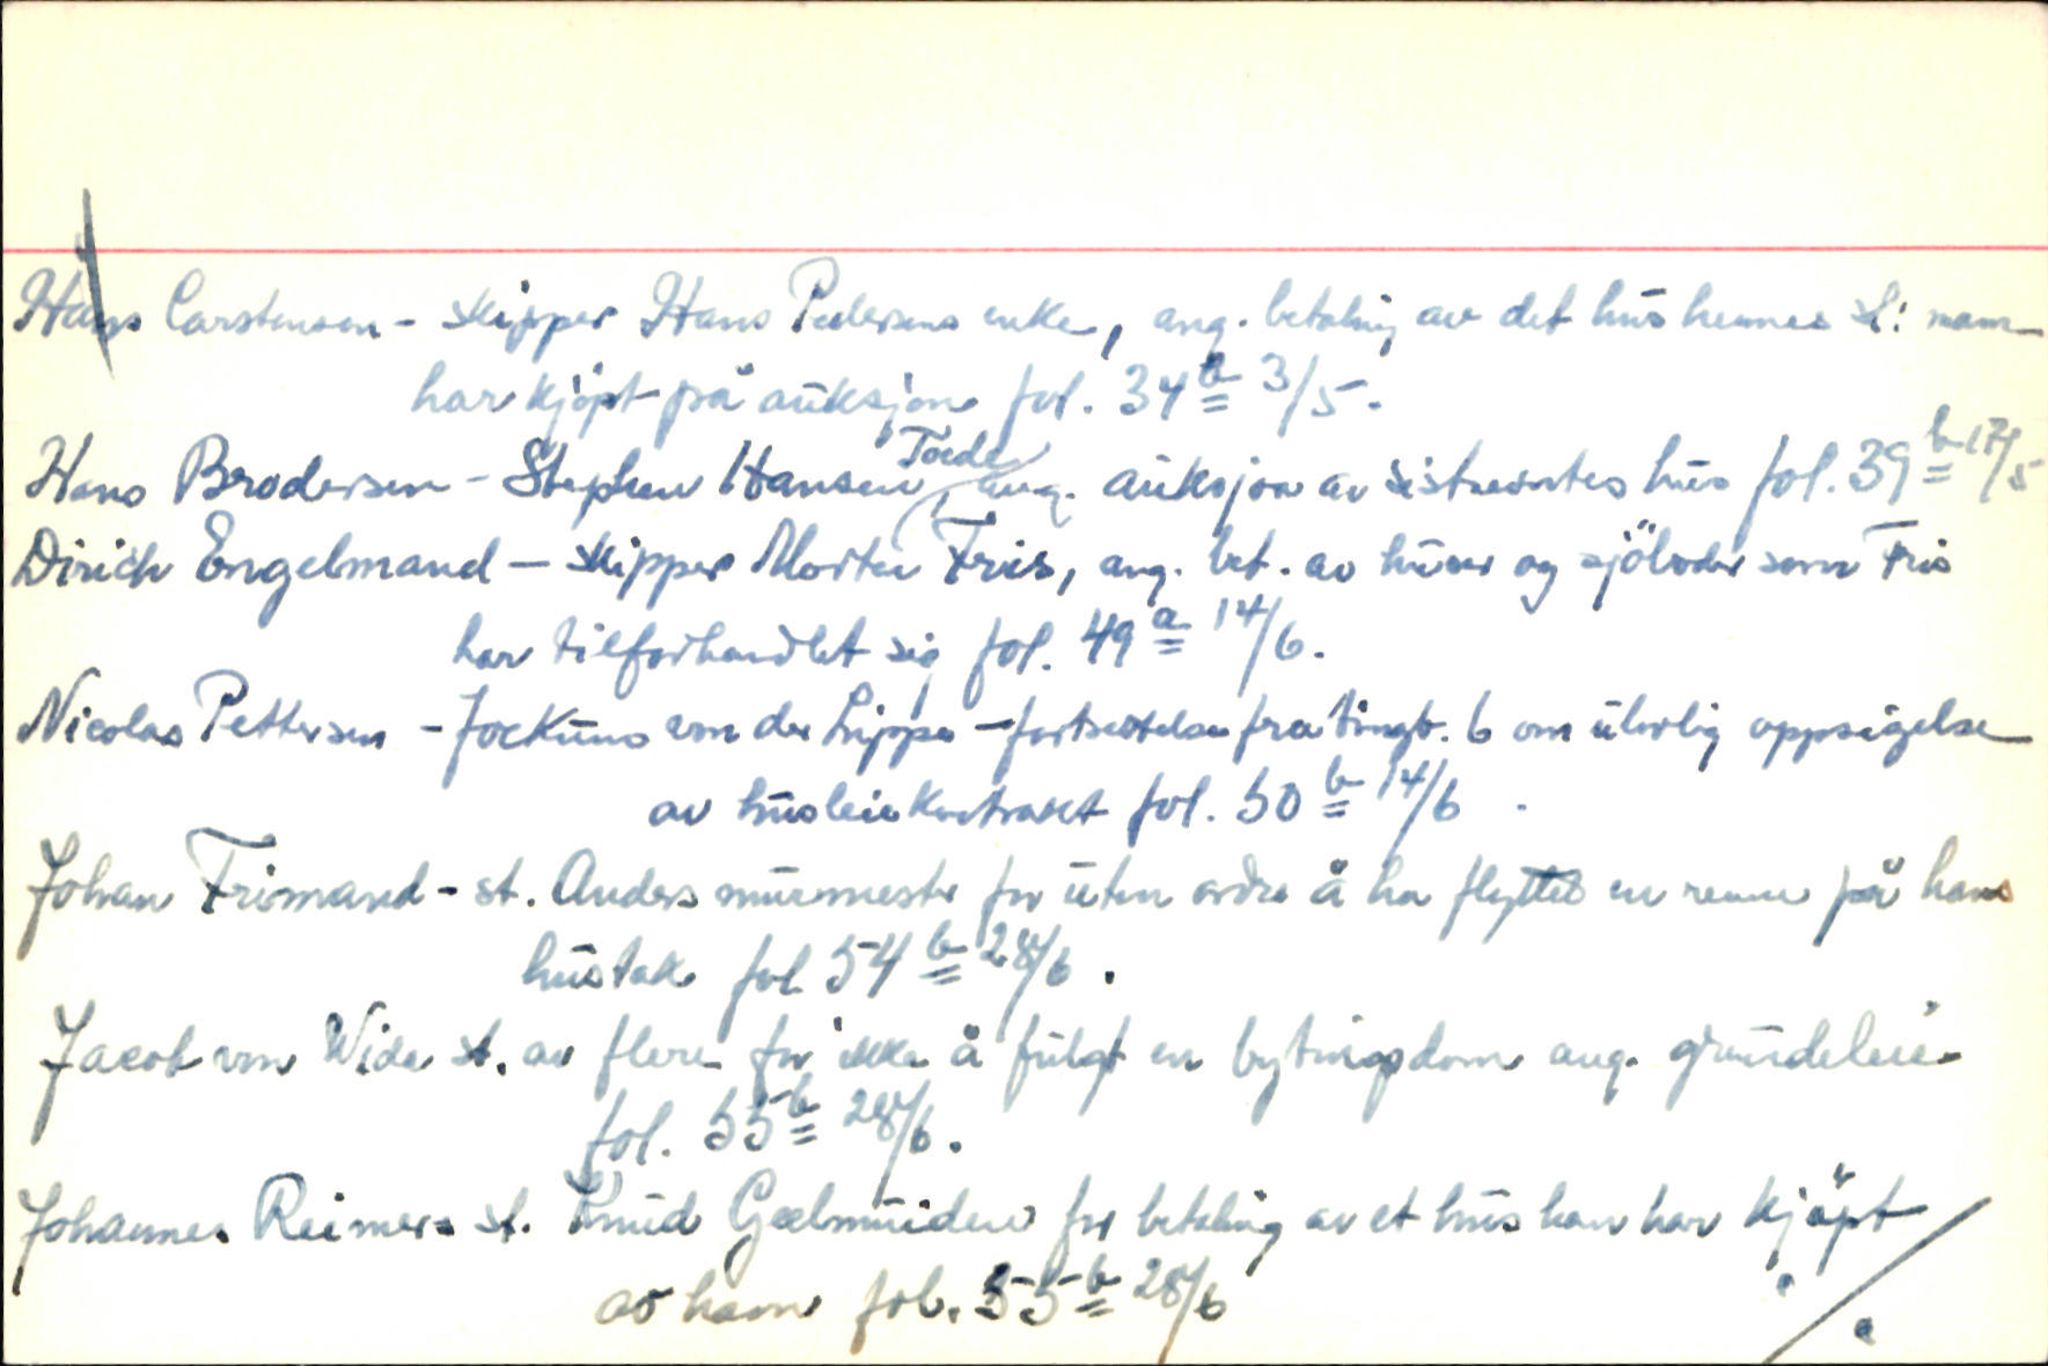 Hans Carstensen - skipper Hans Pedersens enke, ang. betaling av det hus hennes sl: mann
har kjöpt på auksjon fol. 34 b 3/5.
Hans Brodersen - Stephen Hansen Toede, ang. auksjon av sistnevntes hus fol. 39 b 17/5
Dirich Engelmand - skipper Morten Friis, ang. bet. av huser og sjöboder som Friis
har tilforhandlet sig fol. 49 a 14/6.
Nicolas Pettersen - Jockum von der Lippe - fortsettelse fra tingb. 6 om ulovlig oppsigelse
av husleiekontrakt fol. 50 b 14/6.
Johan Frimand - st. Anders murmester for uten ordre å ha flyttet en renne på hans
hustak fol 54 b 28/6.
Jacob von Wida st. av flere for ikke å fulgt en bytingsdom ang. grundeleie
fol. 55 b 28/6.
Johannes Reimers st. Knud Geelmuiden for betaling av et hus han har kjöpt
av ham fol. 55 b 28/6.